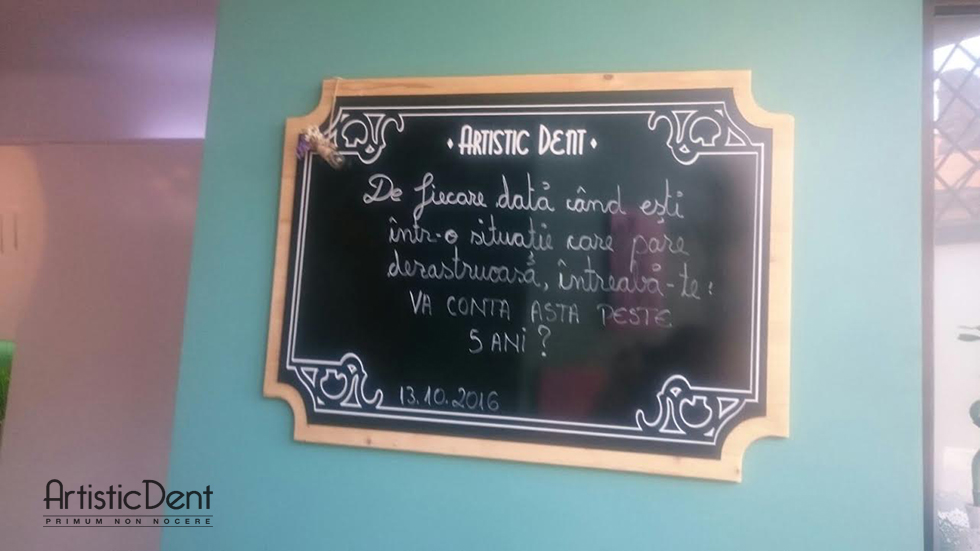 • ARTISTIC DENT •
De fiecare dată când ești
într-o situație care pare
dezastruoasă, întreabă-te:
VA CONTA ASTA PESTE
5 ANI?
13.10.2016
ArtisticDent
PRIMUM NON NOCERE